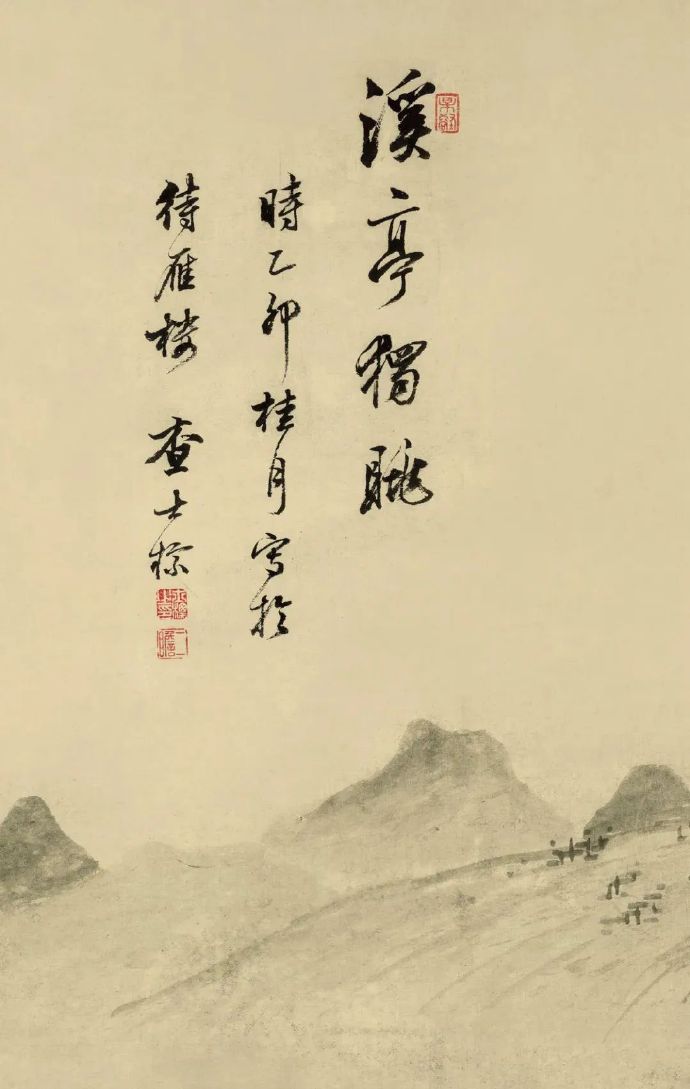 溪亭獨眺
時乙卯桂月寫於
待雁樓 查士標